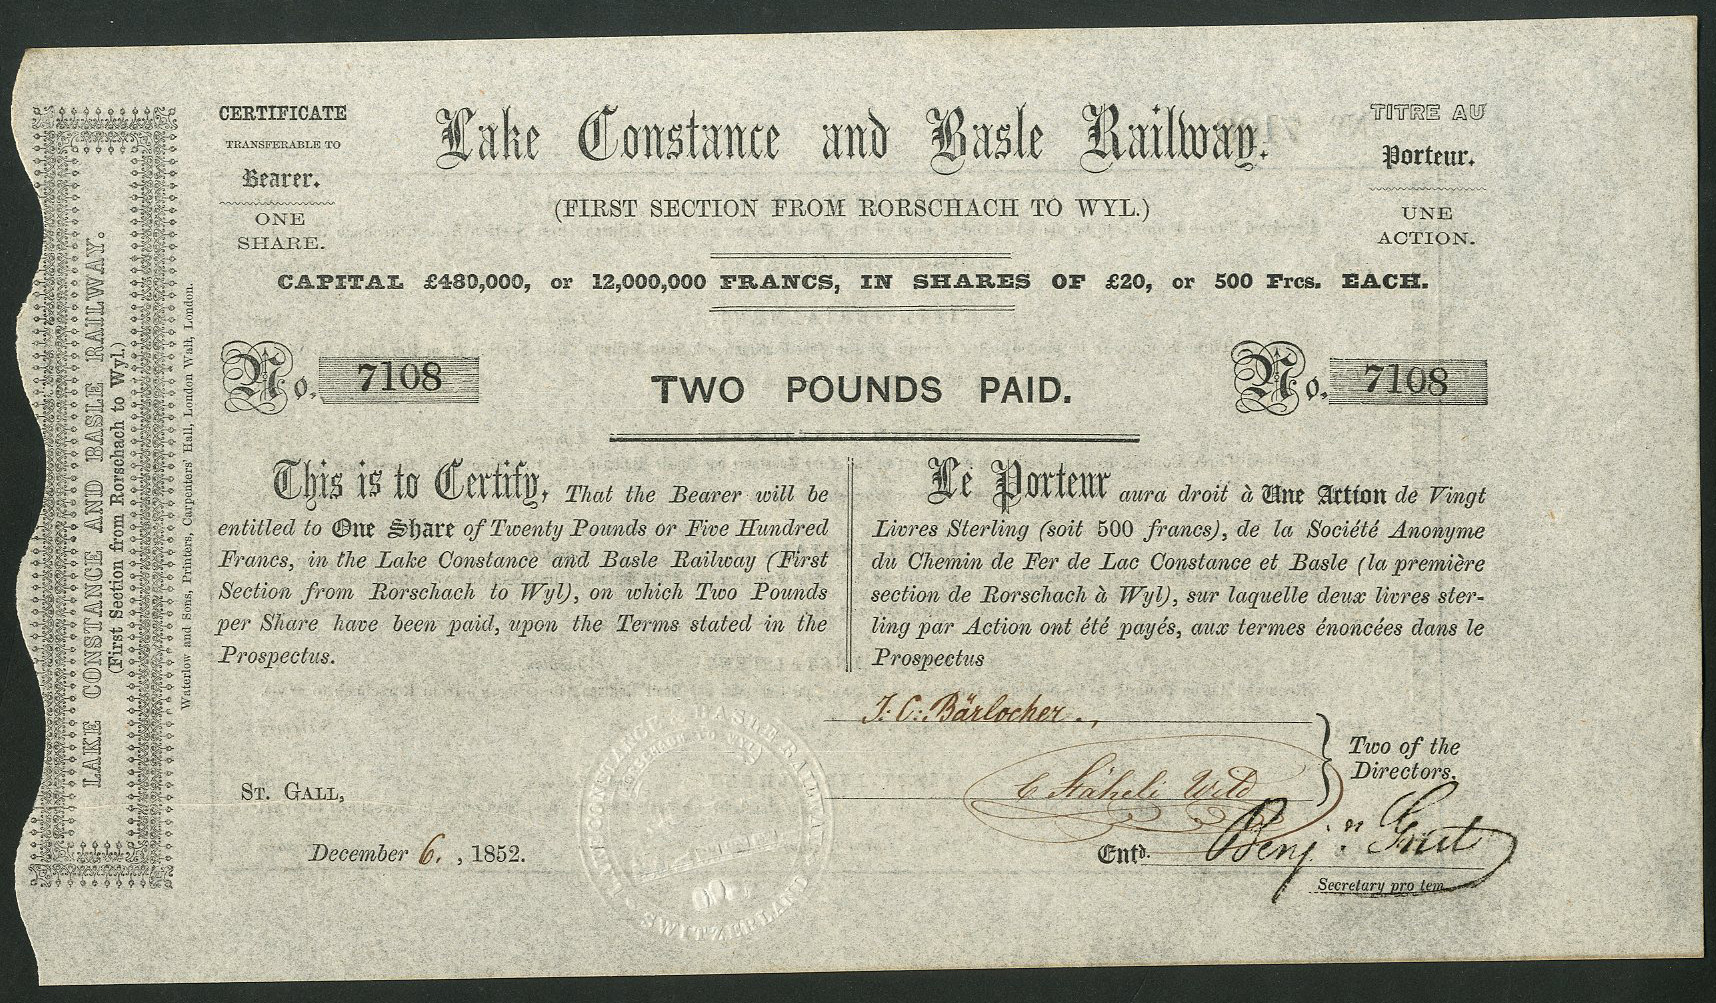 CERTIFICATE
TRANSFERABLE TO
Bearer.
ONE
SHARE.
Lake Constance and Basle Railway.
(FIRST SECTION FROM RORSCHACH TO WYL.)
TITRE AU
Porteur.
UNE
ACTION.
CAPITAL £480,000, or 12,000,000 FRANCS, IN SHARES OF £20, or 500 Frcs. EACH.
No. 7108
TWO POUNDS PAID.
No. 7108
This is to Certify, That the Bearer will be
entitled to One Share of Twenty Pounds or Five Hundred
Francs, in the Lake Constance and Basle Railway (First
Section from Rorschach to Wyl), on which Two Pounds
per Share have been paid, upon the Terms stated in the
Prospectus.
Le Porteur aura droit à Une Action de Vingt
Livres Sterling (soit 500 francs), de la Société Anonyme
du Chemin de Fer de Lac Constance et Basle (la première
section de Rorschach à Wyl), sur laquelle deux livres ster-
ling par Action ont été payés, aux termes énoncées dans le
Prospectus
J. C. Bärlocher.
C Stäheli Wild
Two of the
Directors.
ST. GALL,
December 6. , 1852.
Entd. Benj.n Grut
Secretary pro tem
LAKE CONSTANCE & BASLE RAILWAY
SWITZERLAND
LAKE CONSTANCE AND BASLE RAILWAY.
(First Section from Rorschach to Wyl.)
Waterlow and Sons, Printers, Carpenters' Hall, London Wall, London.